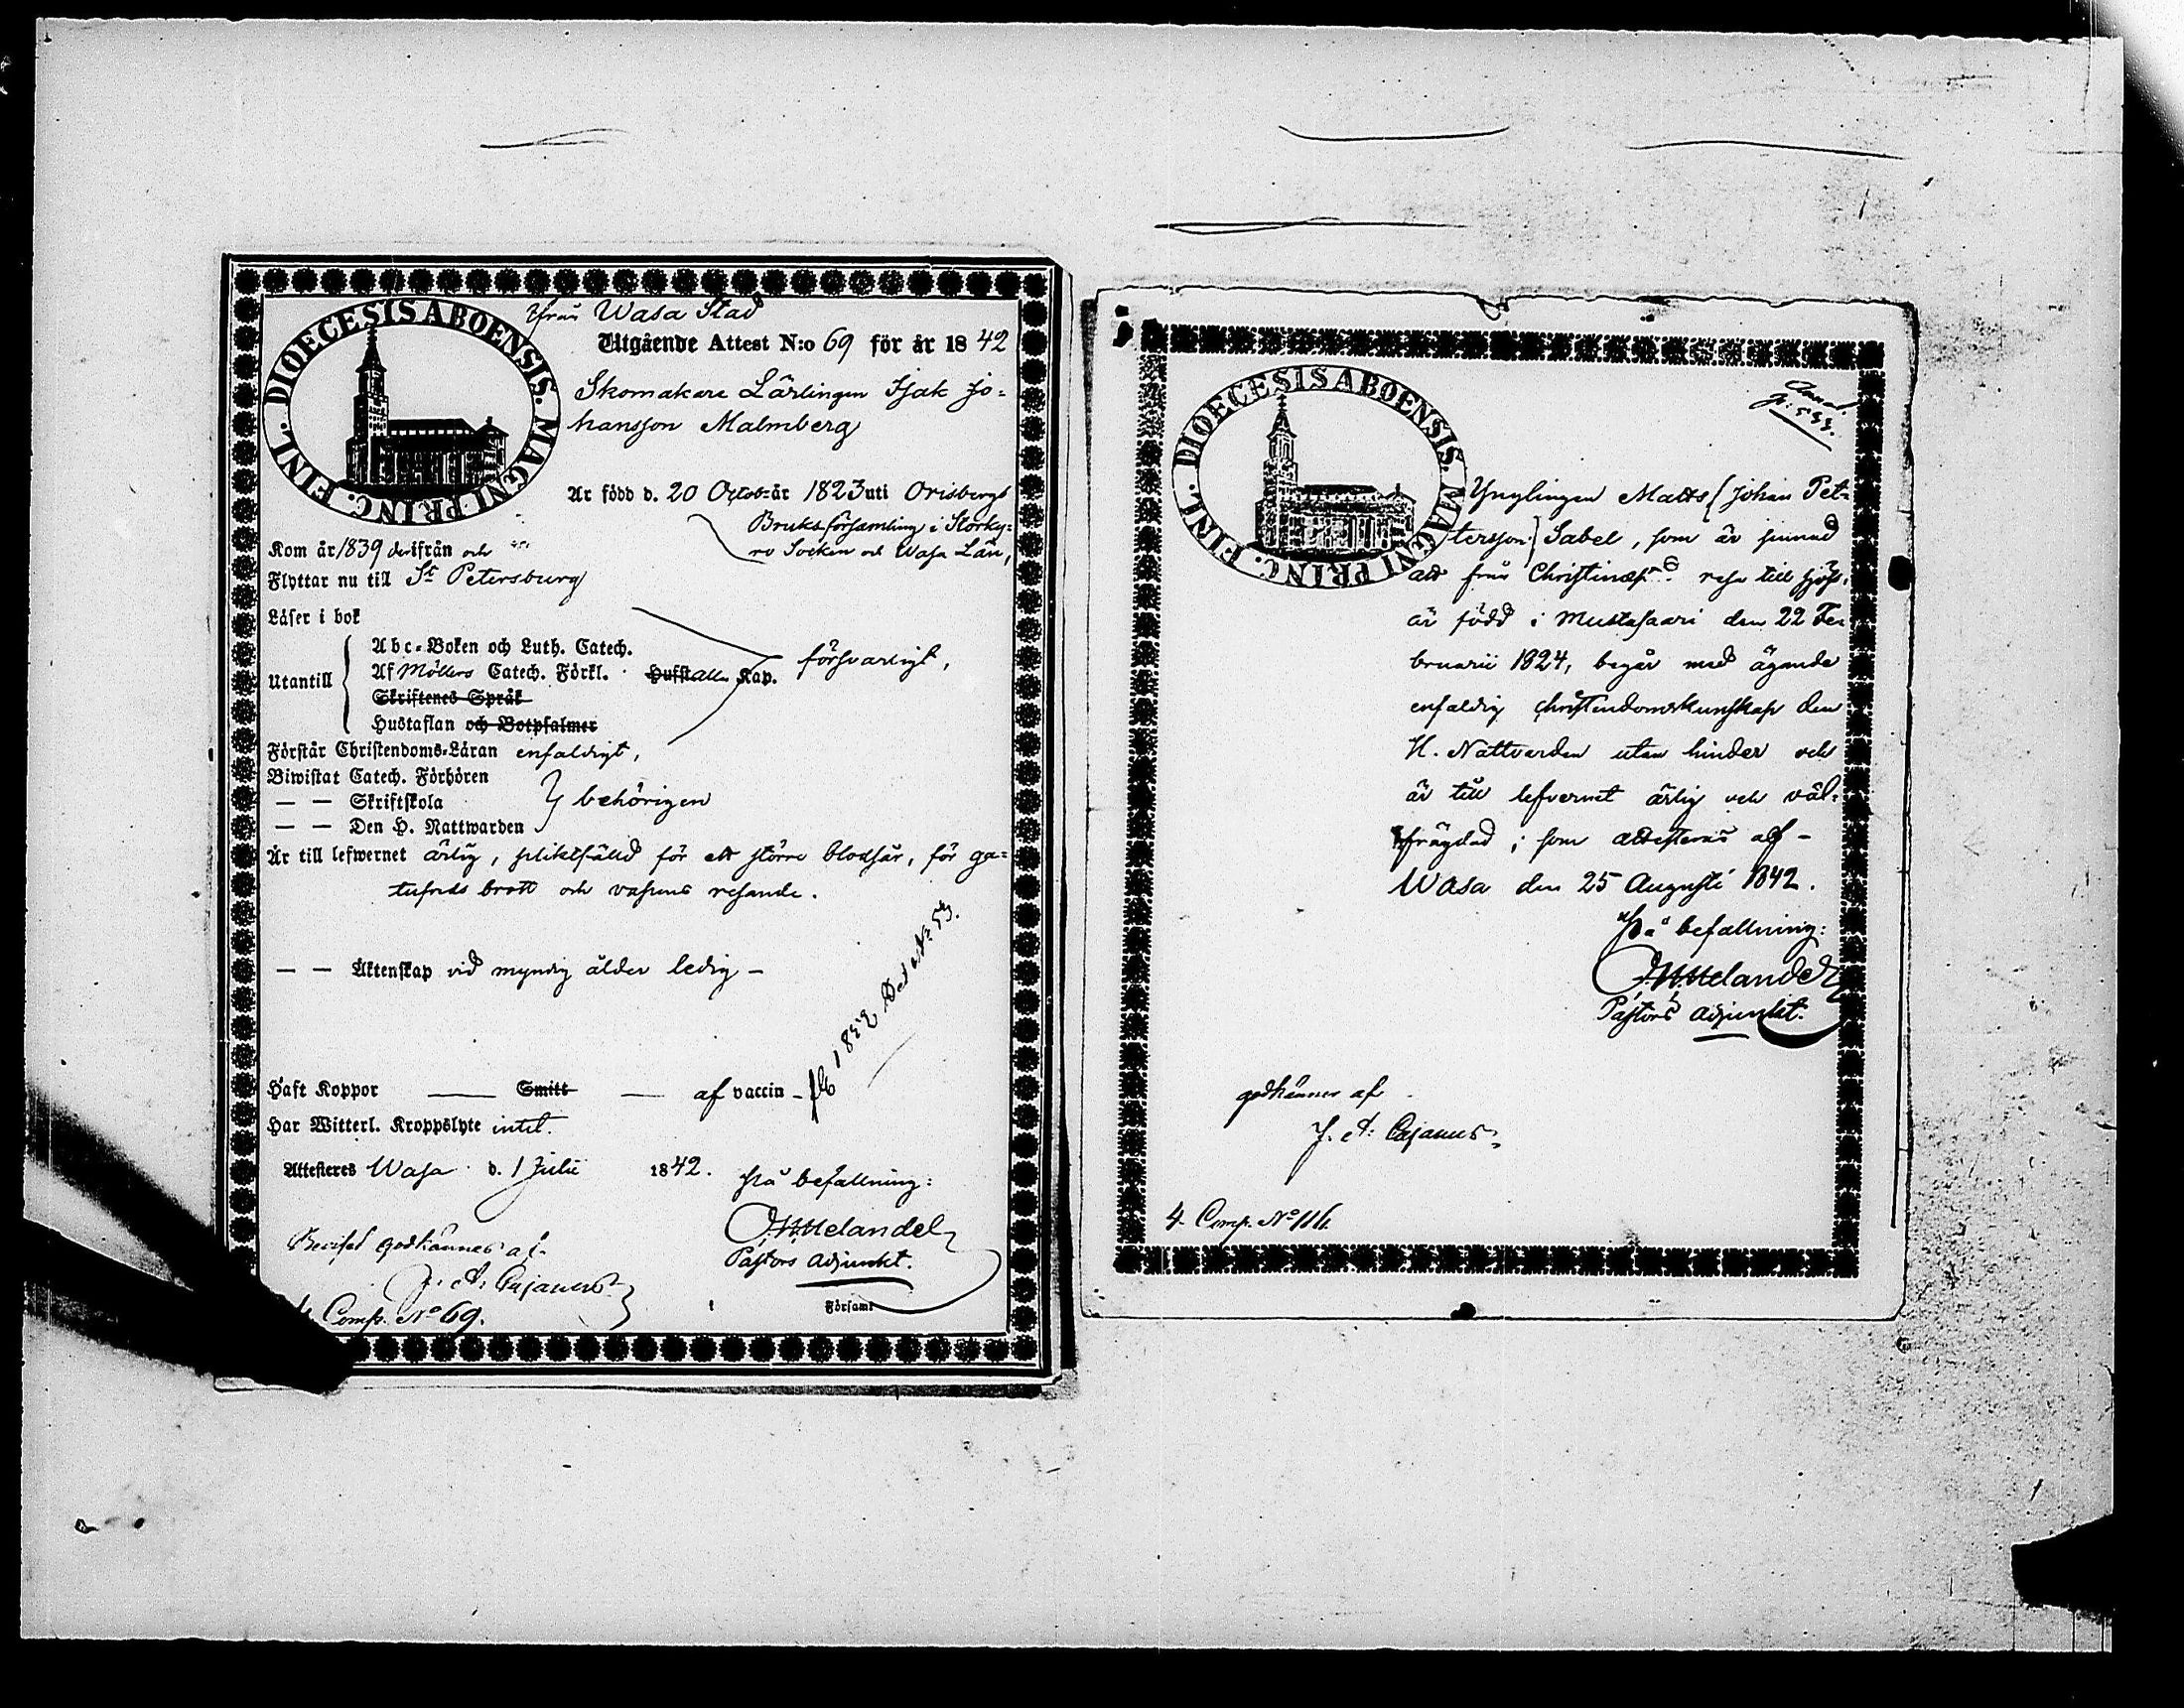 DIOECESIS ABOENSIS. MAGNI PRINC. FINL.
från Wasa Stad
Utgående Attest N:o 69 för år 1842
Skomakare Lärlingen Isak Jo=
hansson Malmberg
Är född d. 20 Octob. år 1823 uti Orisbergs
Bruksförsamling i Storky=
ro Socken och Wasa Län,
Kom år 1839 derifrån och
Flyttar nu till St Petersburg
Läser i bok
Utantill
Abc-Boken och Luth. Catech.
Af Möllers Catech. Förkl. Hufst alla Kap.
försvarligt,
Skriftenes Språk
Hustaflan och Botpsalmer
Förstår Christendoms-Läran enfaldigt,
Biwistat Catech. Förhören
— — Skriftskola
behörigen
— — Den H. Nattwarden
Är till lefwernet ärlig, pliktfälld för ett större blodsår, för ga=
tufrids brott och vapens resande.
— — Äktenskap vid myndig ålder ledig —
Haft Koppor — Smitt — af vaccin —
Har Witterl. Kroppslyte intet.
Attesteres Wasa d. 1 Julii 1842.
På befallning:
Melander
Pastors Adjunkt.
Församl
godkännes af
J. A. Cajanus
Comp. No 69.
DIOECESIS ABOENSIS. MAGNI PRINC. FINL.
Ynglingen Matts (Johan Pet=
tersson) Sabel, som är sinnad
att från Christinæst. resa till sjös,
är född i Mustasaari den 22 Fe=
bruarii 1824, begår med ägande
enfaldig christendomskunskap den
H. Nattvarden utan hinder och
är till lefvernet ärlig och väl=
frägdad; som attesteras af —
Wasa den 25 Augusti 1842.
På befallning:
Melander
Pastors Adjunkt.
godkännes af
J. A. Cajanus
4. Comp. No 116